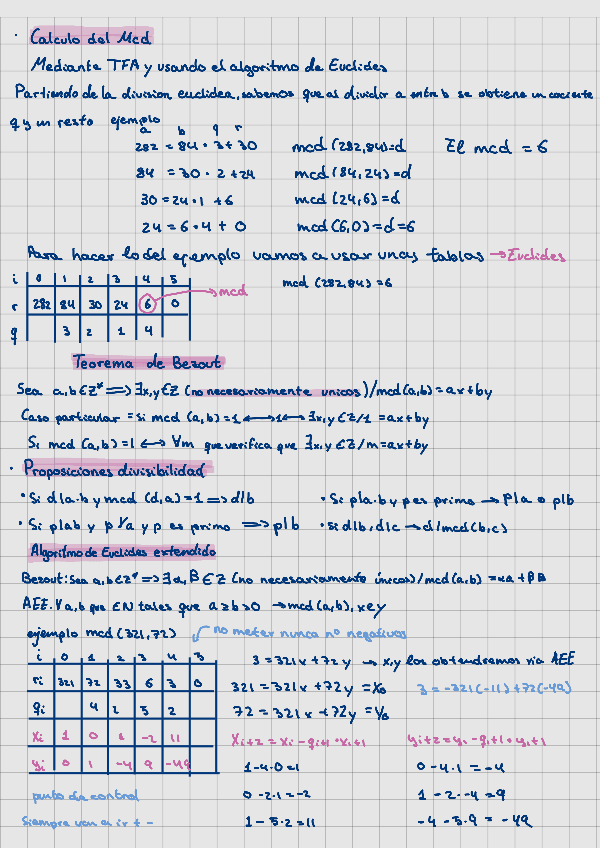 · Calculo del Mcd
Mediante TFA y usando el algoritmo de Euclides
Partiendo de la division euclidea, sabemos que al dividir a entre b se obtiene un cociente
q y un resto ejemplo
a b q r
282 = 84 · 3 + 30 mcd (282,84)=d El mcd = 6
84 = 30 · 2 + 24 mcd (84,24)=d
30 = 24 · 1 + 6 mcd (24,6)=d
24 = 6 · 4 + 0 mcd (6,0)=d=6
Para hacer lo del ejemplo vamos a usar unas tablas → Euclides
i 0 1 2 3 4 5 mcd (282,84)=6
r 282 84 30 24 6 0 → mcd
q 3 2 1 4
Teorema de Bezout
Sea a,b∈Z* ⟹ ∃x,y∈Z (no necesariamente unicos)/mcd(a,b)=ax+by
Caso particular = si mcd (a,b)=1 ⟷ 1 ⟷ ∃x,y∈Z/1=ax+by
Si mcd (a,b)=1 ⟷ ∀m que verifica que ∃x,y∈Z/m=ax+by
· Proposiciones divisibilidad
• Si d|a·b y mcd (d,a)=1 ⟹ d|b • Si p|a·b y p es primo → p|a o p|b
• Si p|ab y p∤a y p es primo ⟹ p|b • si d|b,d|c → d/mcd(b,c)
Algoritmo de Euclides extendido
Bezout: Sea a,b∈Z* ⟹ ∃α,β∈Z (no necesariamente únicos)/mcd(a,b) = αa + βB
AEE. ∀a,b ∈N tales que a≥b>0 → mcd(a,b), x e y
ejemplo mcd (321,72) no meter nunca no negativos
i 0 1 2 3 4 5 3=321x+72y → x,y los obtendremos via AEE
ri 321 72 33 6 3 0 321=321x+72y=X₀ 3=-321(-11)+72(-49)
qi 4 2 5 2 72=321x+72y=Y₀
xi 1 0 1 -2 11 Xi+2=Xi-qi+1·Xi+1 yi+2=yi-qi+1·yi+1
yi 0 1 -4 9 -49 1-4·0=1 0-4·1=-4
punto de control 0-2·1=-2 1-2·-4=9
Siempre van a ir + - 1-5·2=11 -4-5·9=-49